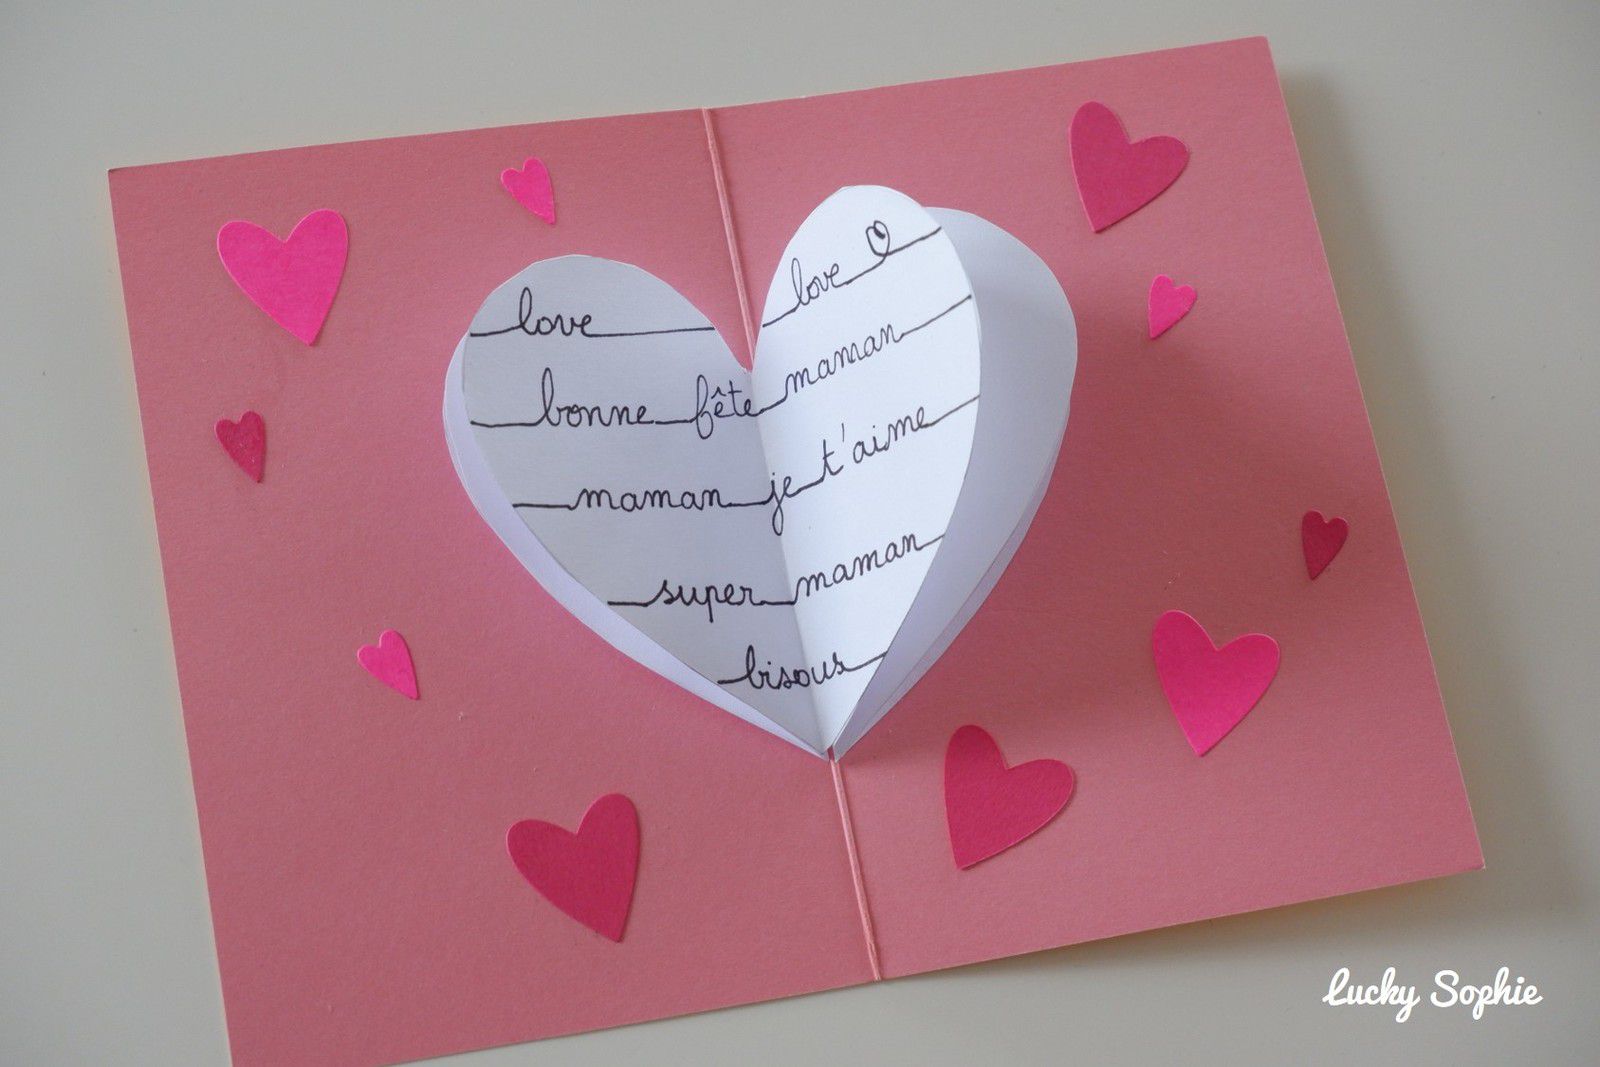 love love
bonne fête maman
maman je t'aime
super maman
bisous
Lucky Sophie